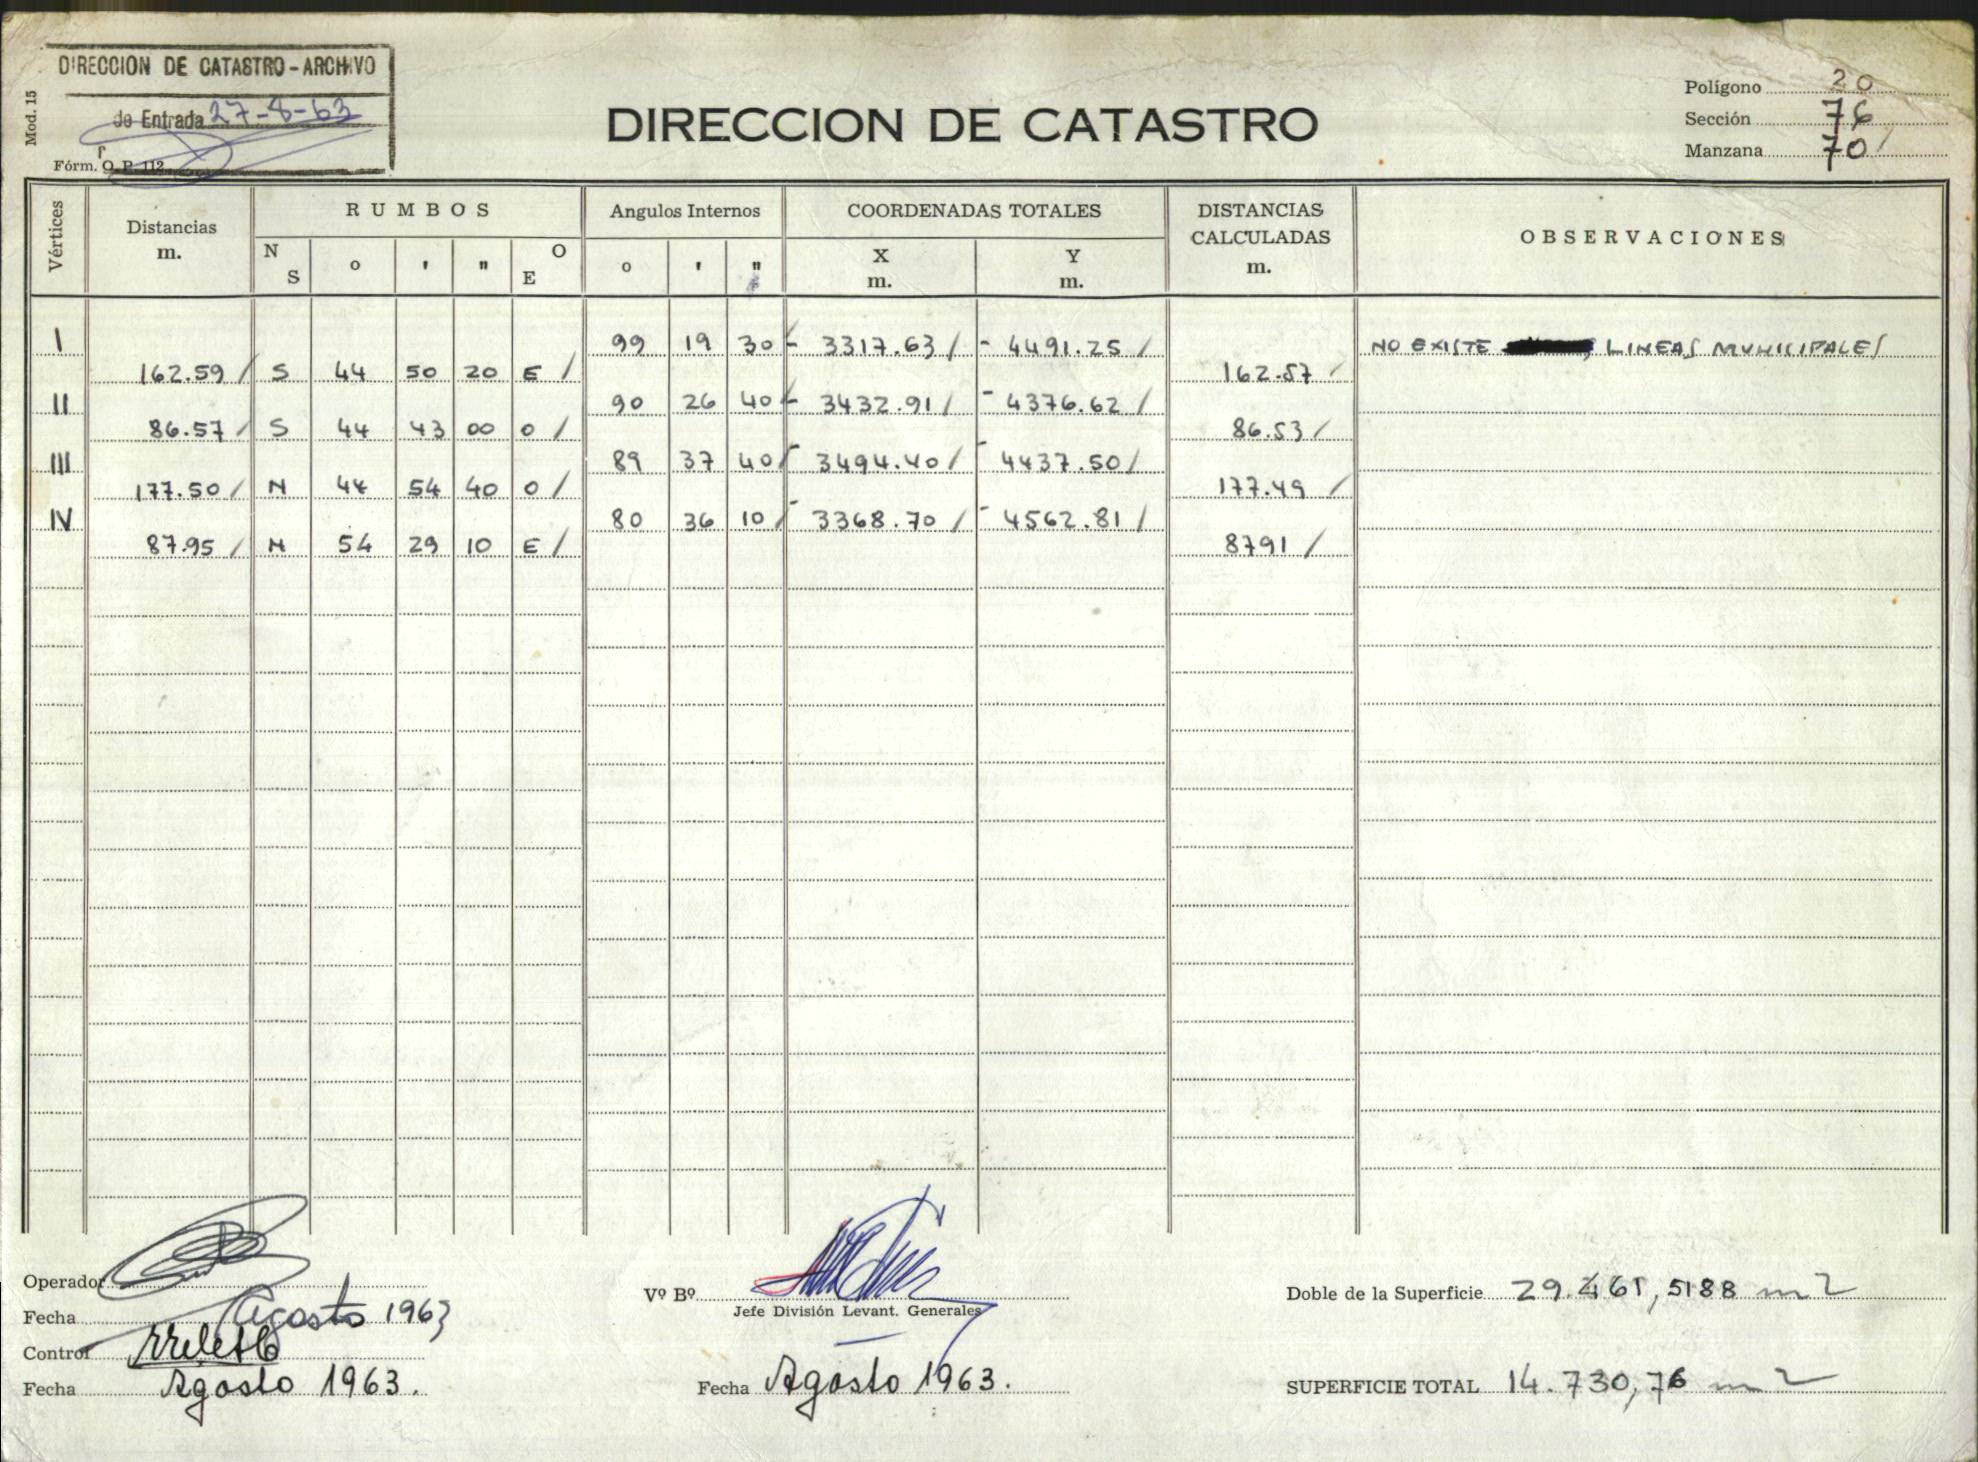 DIRECCION DE CATASTRO - ARCHIVO
de Entrada 27-8-63
Mod. 15
Fórm. O. P. 112
DIRECCION DE CATASTRO
Polígono 20
Sección 76
Manzana 70
Vértices
Distancias
m.
RUMBOS
N S ° ' " O E
Angulos Internos
° ' "
COORDENADAS TOTALES
X
m.
Y
m.
DISTANCIAS
CALCULADAS
m.
OBSERVACIONES
I 99 19 30 - 3317.63 / - 4491.25 / NO EXISTE LINEAS MUNICIPALES
162.59 / S 44 50 20 E / 162.57 /
II 90 26 40 - 3432.91 / - 4376.62 /
86.57 / S 44 43 00 O / 86.53 /
III 89 37 40 / - 3494.40 / - 4437.50 /
177.50 / N 44 54 40 O / 177.49 /
IV 80 36 10 / - 3368.70 / - 4562.81 /
87.95 / N 54 29 10 E / 8791 /
Operador
Fecha Agosto 1963
Control
Fecha Agosto 1963.
Vº Bº
Jefe División Levant. Generales
Fecha Agosto 1963.
Doble de la Superficie 29.461,5188 m2
SUPERFICIE TOTAL 14.730,76 m2